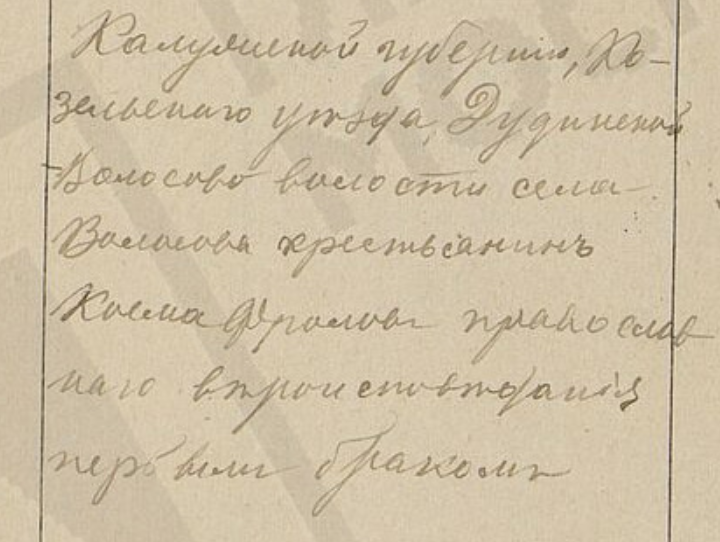 Калужской губернии, Ко-
зельскаго уѣзда, Дудинской
Волосово волости села
Волосова крестьянинъ
Косма Фролов православ
наго вѣроисповѣданія
первымъ бракомъ